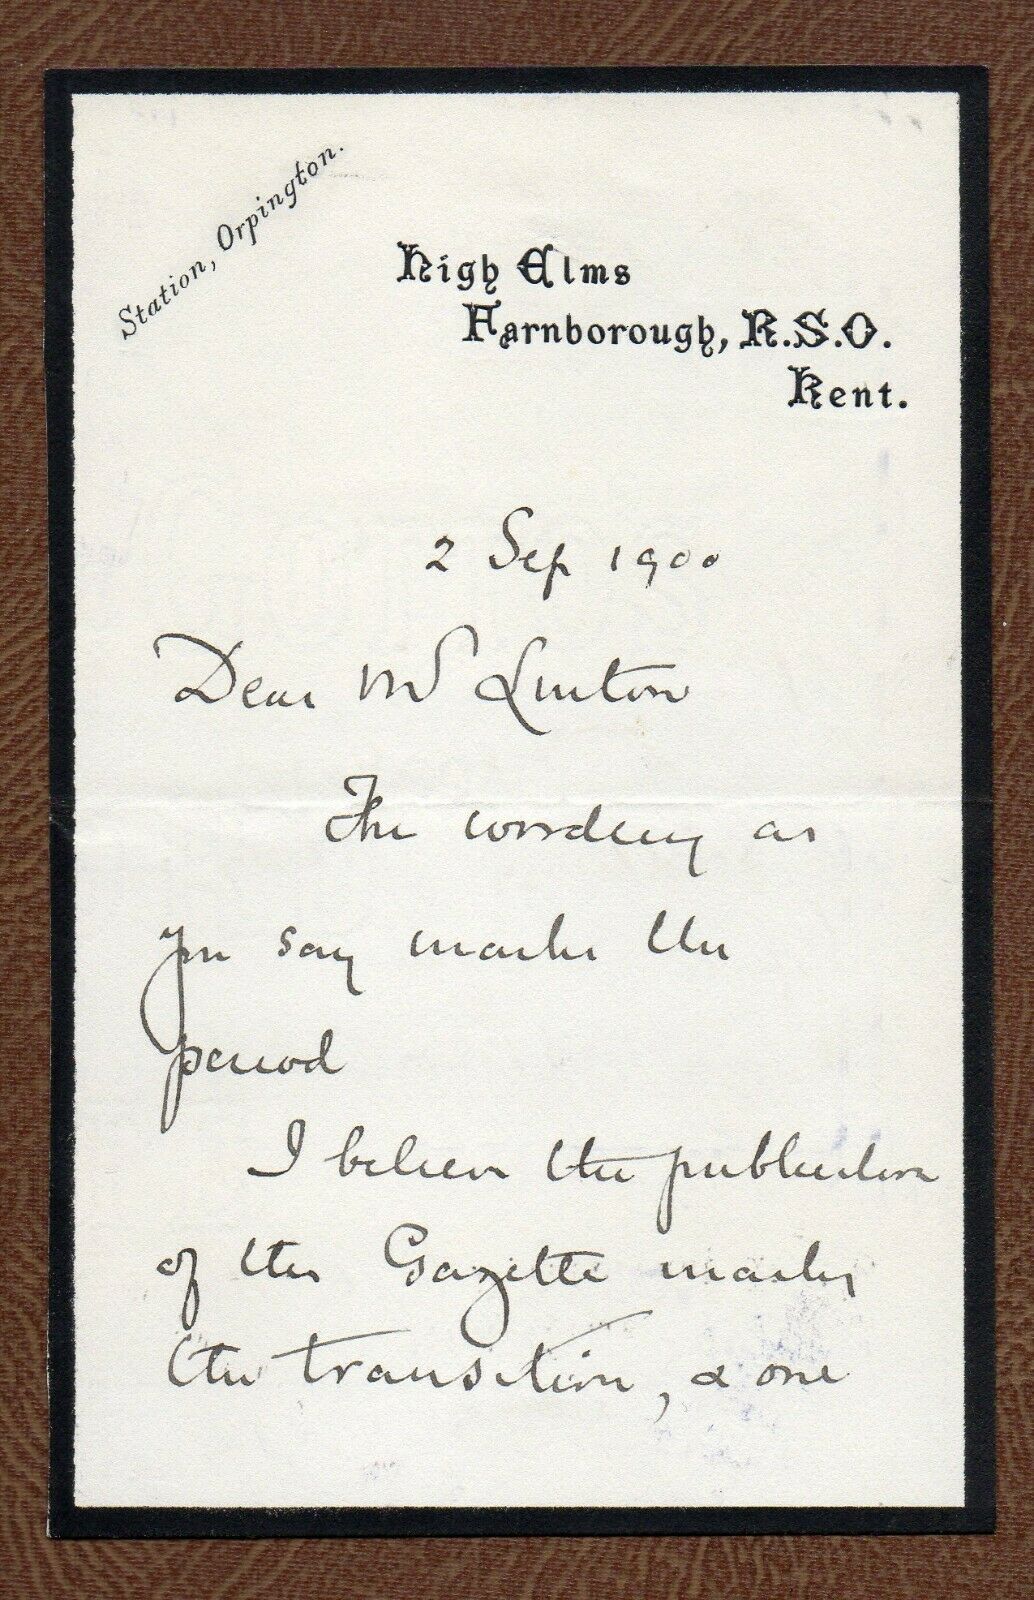 Station, Orpington.
High Elms
Farnborough, R.S.O.
Kent.
2 Sep 1900
Dear Mr Linton
The wording as
you say marks the
period
I believe the publication
of the Gazette marks
the transition, & one